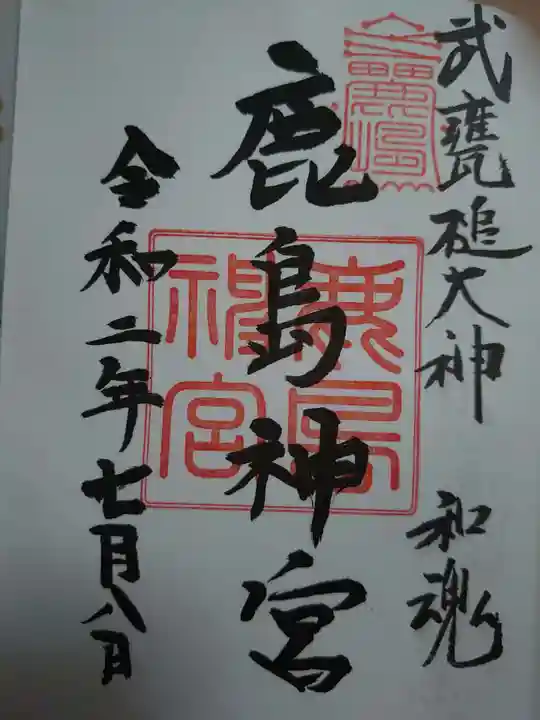 武甕槌大神 和魂
鹿島神宮
鹿島
神宮
令和二年七月八日